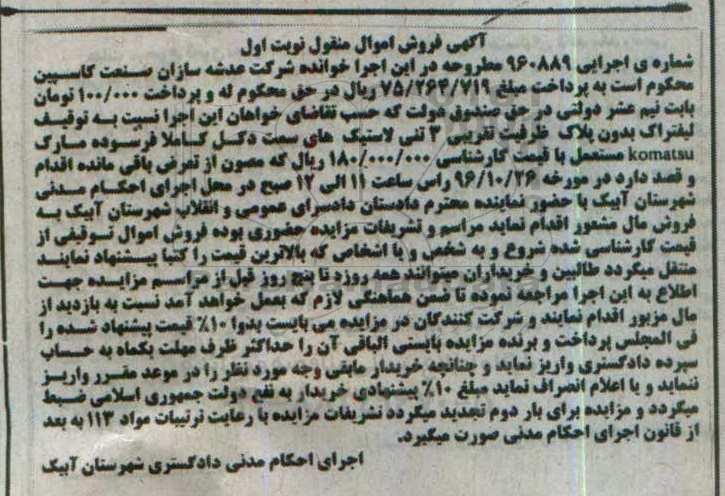 آگهی فروش اموال منقول نوبت اول
شماره ی اجرایی ۹۶۰۸۸۹ مطروحه در این اجرا خوانده شرکت عدشه سازان صنعت کاسپین
محکوم است به پرداخت مبلغ ۷۵/۲۶۴/۷۱۹ ریال در حق محکوم له و پرداخت ۱۰۰/۰۰۰ تومان
بابت نیم عشر دولتی در حق صندوق دولت که حسب تقاضای خواهان این اجرا نسبت به توقیف
لیفتراک بدون پلاک ظرفیت تقریبی ۳ تنی لاستیک های سمت دکل کاملا فرسوده مارک
komatsu مستعمل با قیمت کارشناسی ۱۸۰/۰۰۰/۰۰۰ ریال که مصون از تعرض باقی مانده اقدام
و قصد دارد در مورخه ۹۶/۱۰/۲۶ راس ساعت ۱۱ الی ۱۲ صبح در محل اجرای احکام مدنی
شهرستان آبیک با حضور نماینده محترم دادستان دادسرای عمومی و انقلاب شهرستان آبیک به
فروش مال مشعور اقدام نماید مراسم و تشریفات مزایده حضوری بوده فروش اموال توقیفی از
قیمت کارشناسی شده شروع و به شخص و یا اشخاص که بالاترین قیمت را کتبا پیشنهاد نمایند
منتقل میگردد طالبین و خریداران میتوانند همه روزه تا پنج روز قبل از مراسم مزایده جهت
اطلاع به این اجرا مراجعه نموده تا ضمن هماهنگی لازم که بعمل خواهد آمد نسبت به بازدید از
مال مزبور اقدام نمایند و شرکت کنندگان در مزایده می بایست بدوا ۱۰٪ قیمت پیشنهاد شده را
فی المجلس پرداخت و برنده مزایده بایستی الباقی آن را حداکثر ظرف مهلت یکماه به حساب
سپرده دادگستری واریز نماید و چنانچه خریدار مابقی وجه مورد نظر را در موعد مقرر واریز
ننماید و یا اعلام انصراف نماید مبلغ ۱۰٪ پیشنهادی خریدار به نفع دولت جمهوری اسلامی ضبط
میگردد و مزایده برای بار دوم تجدید میگردد تشریفات مزایده با رعایت ترتیبات مواد ۱۱۳ به بعد
از قانون اجرای احکام مدنی صورت میگیرد.
اجرای احکام مدنی دادگستری شهرستان آبیک